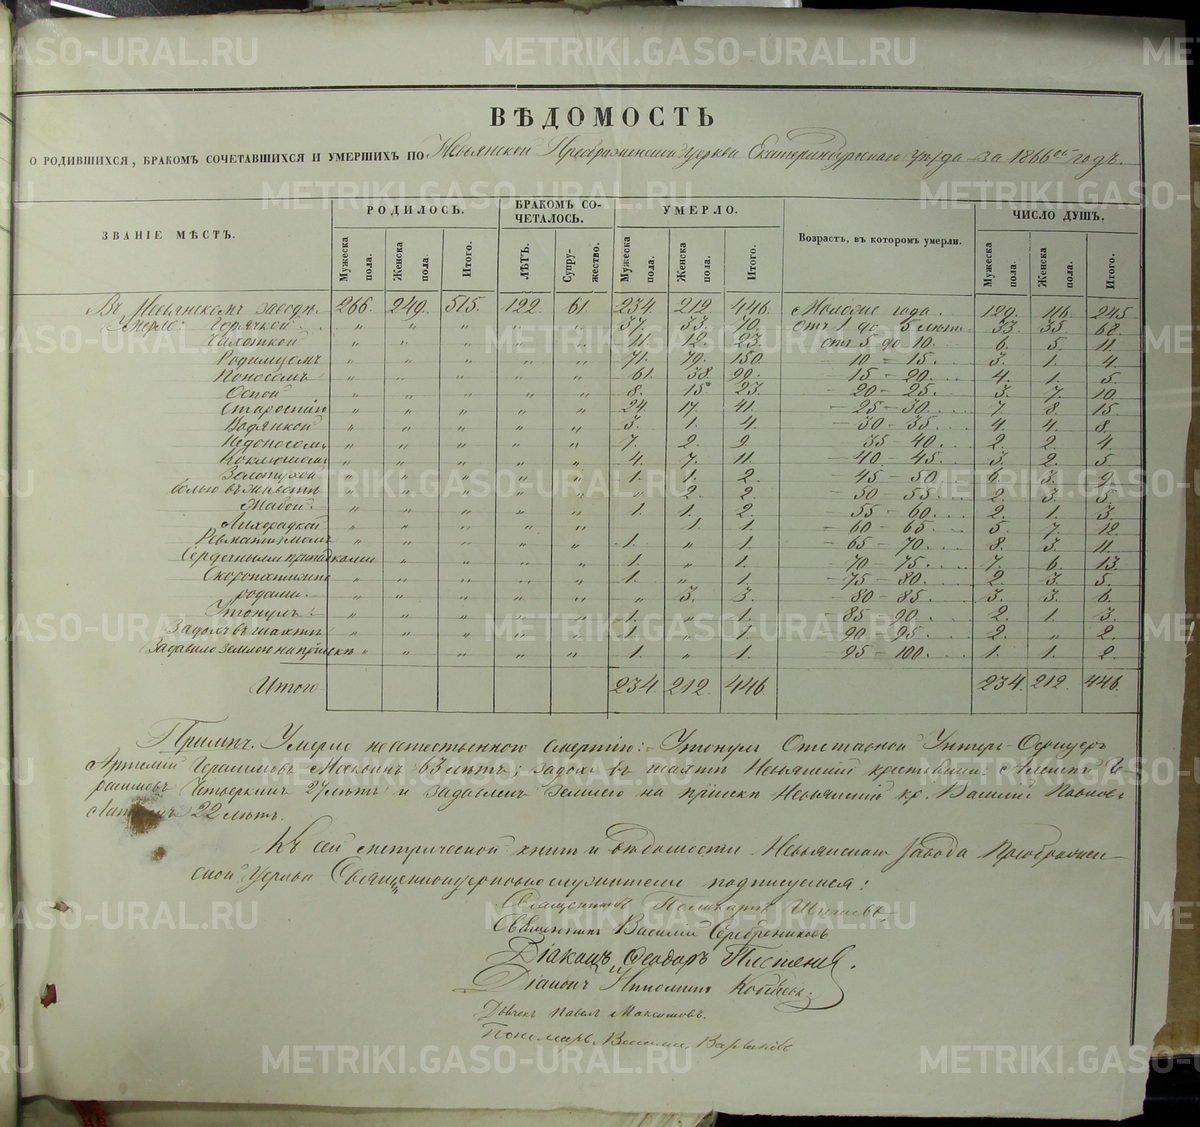 METRIKI.GASO-URAL.RU
ВѢДОМОСТЬ
О РОДИВШИХСЯ, БРАКОМЪ СОЧЕТАВШИХСЯ И УМЕРШИХЪ ПО Невьянской Преображенской церкви Екатеринбургскаго уѣзда за 1866ой годъ.
ЗВАНІЕ МѢСТЪ. РОДИЛОСЬ. БРАКОМЪ СОЧЕТАЛОСЬ. УМЕРЛО. Возрастъ, въ которомъ умерли. ЧИСЛО ДУШЪ.
Мужеска пола. Женска пола. Итого. ЛѢТЪ. Супружество. Мужеска пола. Женска пола. Итого. Мужеска пола. Женска пола. Итого.
Въ Невьянскомъ заводѣ 266. 249. 515. 122. 61 234. 212. 446. Моложе года. 129. 116. 245
Умерло: Горячкой " " " " " 37. 33. 70. отъ 1 до 5 лѣтъ 33. 35. 68.
" " " " " 11. 12. 23. отъ 5 до 10. 6. 5. 11.
Родимцомъ " " " " " 71. 79. 150. 10 – 15. 3. 1. 4.
Поносомъ " " " " " 61. 38. 99. 15 – 20. 4. 1. 5.
Оспой " " " " " 8. 15. 23. 20 – 25. 3. 7. 10.
Старостію " " " " " 24. 17. 41. 25 – 30. 7. 8. 15.
Водянкой " " " " " 3. 1. 4. 30 – 35. 4. 4. 8.
" " " " " 7. 2. 9. 35 – 40. 2. 2. 4.
Коклюшемъ " " " " " 4. 7. 11. 40 – 45. 3. 2. 5.
Золотухой " " " " " 1. 1. 2. 45 – 50 6. 3. 9.
Болью въ животѣ " " " " " " 2. 2. 50 – 55. 2. 3. 5.
Жабой " " " " " 1. 1. 2. 55 – 60. 2. 1. 3.
Лихорадкой " " " " " 1. 1. 60 – 65. 5. 7. 12.
Ревматизмомъ " " " " " 1. " 1. 65 – 70. 8. 3. 11.
Сердечными припадками " " " " 1. " 1. 70 – 75. 7. 6. 13.
Скоропостижно " " " " " 1. " 1. 75 – 80. 2. 3. 5.
родами " " " " " " 3. 3. 80 – 85. 3. 3. 6.
Утонулъ " " " " " 1. " 1. 85 – 90. 2. 1. 3.
Задохъ въ шахтѣ " " " " " 1. " 1. 90 – 95. 2. " 2.
Задавило землею на пріискѣ " " " " " 1. " 1. 95 – 100. 1. 1. 2.
Итого 234. 212. 446 234. 212. 446.
Примѣч. Умерло неестественною смертію: Утонулъ Отставной Унтеръ-Офицеръ
Артемій Герасимовъ 63 лѣтъ; задохъ въ шахтѣ Невьянскій крестьянинъ Алексѣй
27 лѣтъ и задавленъ землею на пріискѣ Невьянскій кр. Василій
22 лѣтъ.
Къ сей метрической книгѣ и вѣдомости Невьянскаго завода Преображен-
ской Церкви Священноцерковнослужители подписуемся:
Священникъ
Священникъ Василій Серебрениковъ
Діаконъ Ѳеодоръ
Діаконъ
Дьячекъ Павелъ Максимовъ.
Пономарь